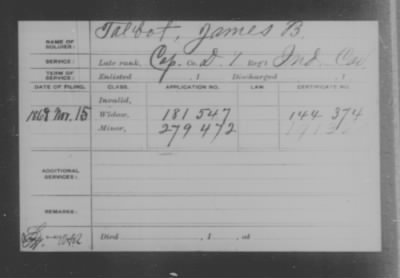 Talbot, James B.
NAME OF SOLDIER:
SERVICE: Late rank, Cap, Co. D, 1 Reg't Ind. Cav.
TERM OF SERVICE: Enlisted , 1 Discharged , 1
DATE OF FILING. CLASS. APPLICATION NO. LAW. CERTIFICATE NO.
Invalid,
1868 Nov. 15 Widow, 181 547 144 374
Minor, 279 472
ADDITIONAL SERVICES:
REMARKS:
Died , 1 , at